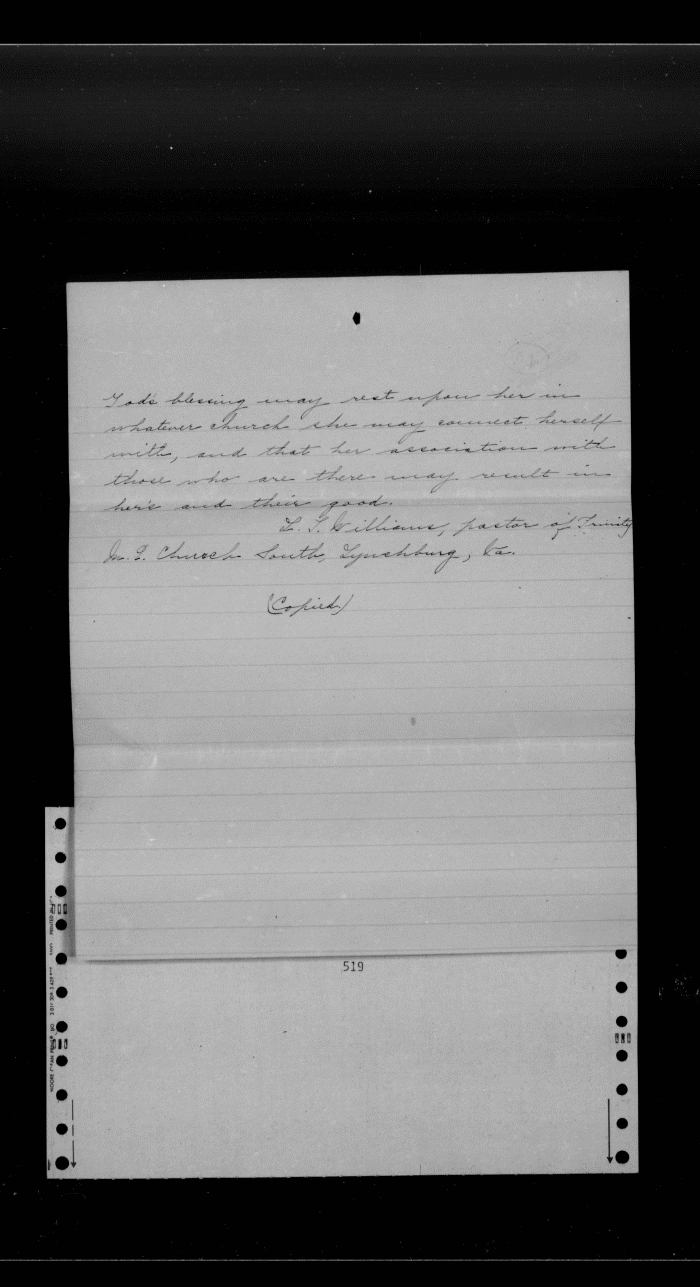 God's blessing may rest upon her in
whatever church she may connect herself
with, and that her association with
those who are there may result in
her's and their good.
L. T. Williams, pastor of Trinity
M. E. Church South, Lynchburg, Va.
(Copied)
519